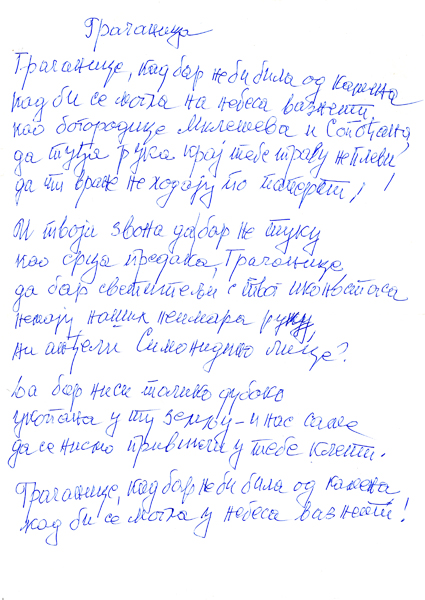 Грачаница
Грачанице, кад бар не би била од камена
кад би се могла на небеса вазнети,
као богородице Милешева и Сопоћана
да туђа рука крај тебе траву не плеви
да ти вране не ходају по паперти!
И твоја звона да бар не туку
као срца предака, Грачанице,
да бар светитељи с твог иконостаса
немају наших неимара руку,
ни анђели Симонидино лице?
Да бар ниси толико дубоко
укопана у ту земљу – и нас саме
да се нисмо привикли у тебе клети.
Грачанице, кад бар не би била од камена
кад би се могла у небеса вазнети!